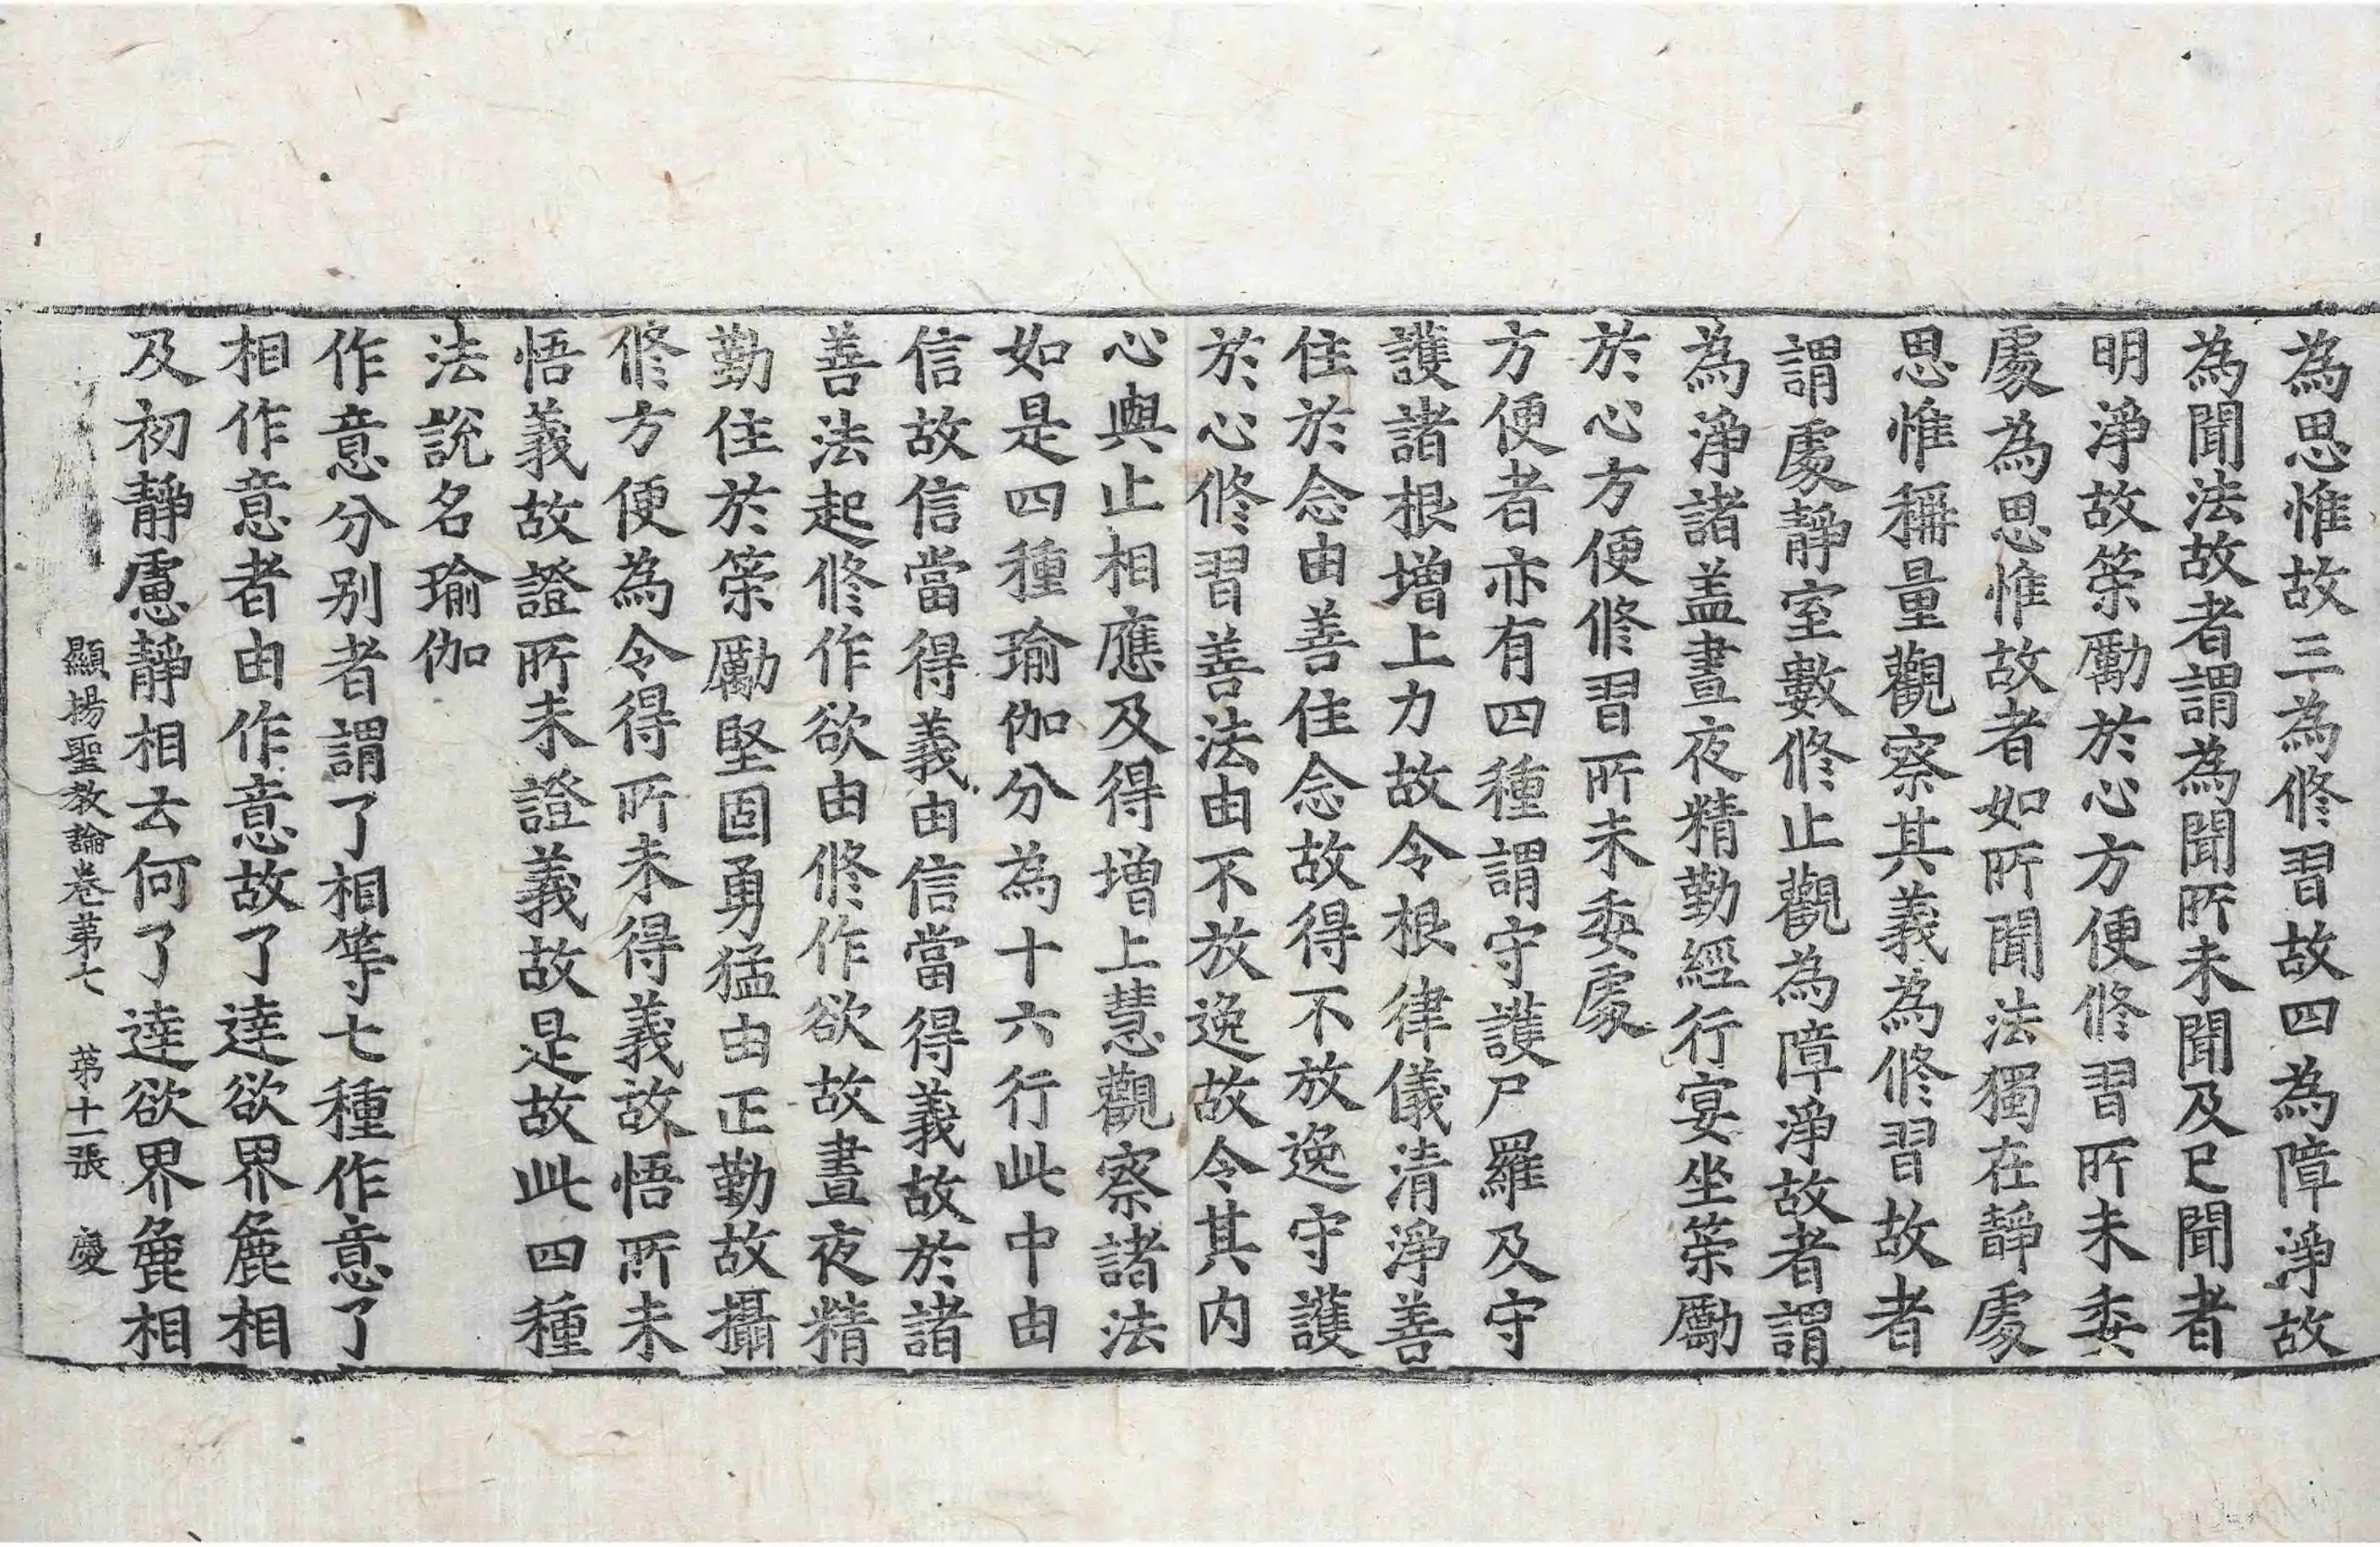 為思惟故三為修習故四為障淨故
為聞法故者謂為聞所未聞及已聞者
明淨故策勵於心方便修習所未委
處為思惟故者如所聞法獨在靜處
思惟稱量觀察其義為修習故者
謂處靜室數修止觀為障淨故者謂
為淨諸盖晝夜精勤經行宴坐策勵
於心方便修習所未委處
方便者亦有四種謂守護尸羅及守
護諸根增上力故令根律儀清淨善
住於念由善住念故得不放逸守護
於心修習善法由不放逸故令其內
心與止相應及得增上慧觀察諸法
如是四種瑜伽分為十六行此中由
信故信當得義由信當得義故於諸
善法起修作欲由修作欲故晝夜精
勤住於策勵堅固勇猛由正勤故攝
修方便為令得所未得義故悟所未
悟義故證所未證義故是故此四種
法說名瑜伽
作意分別者謂了相等七種作意了
相作意者由作意故了達欲界麁相
及初靜慮靜相去何了達欲界麁相
顯揚聖教論卷苐七 苐十一張 慶